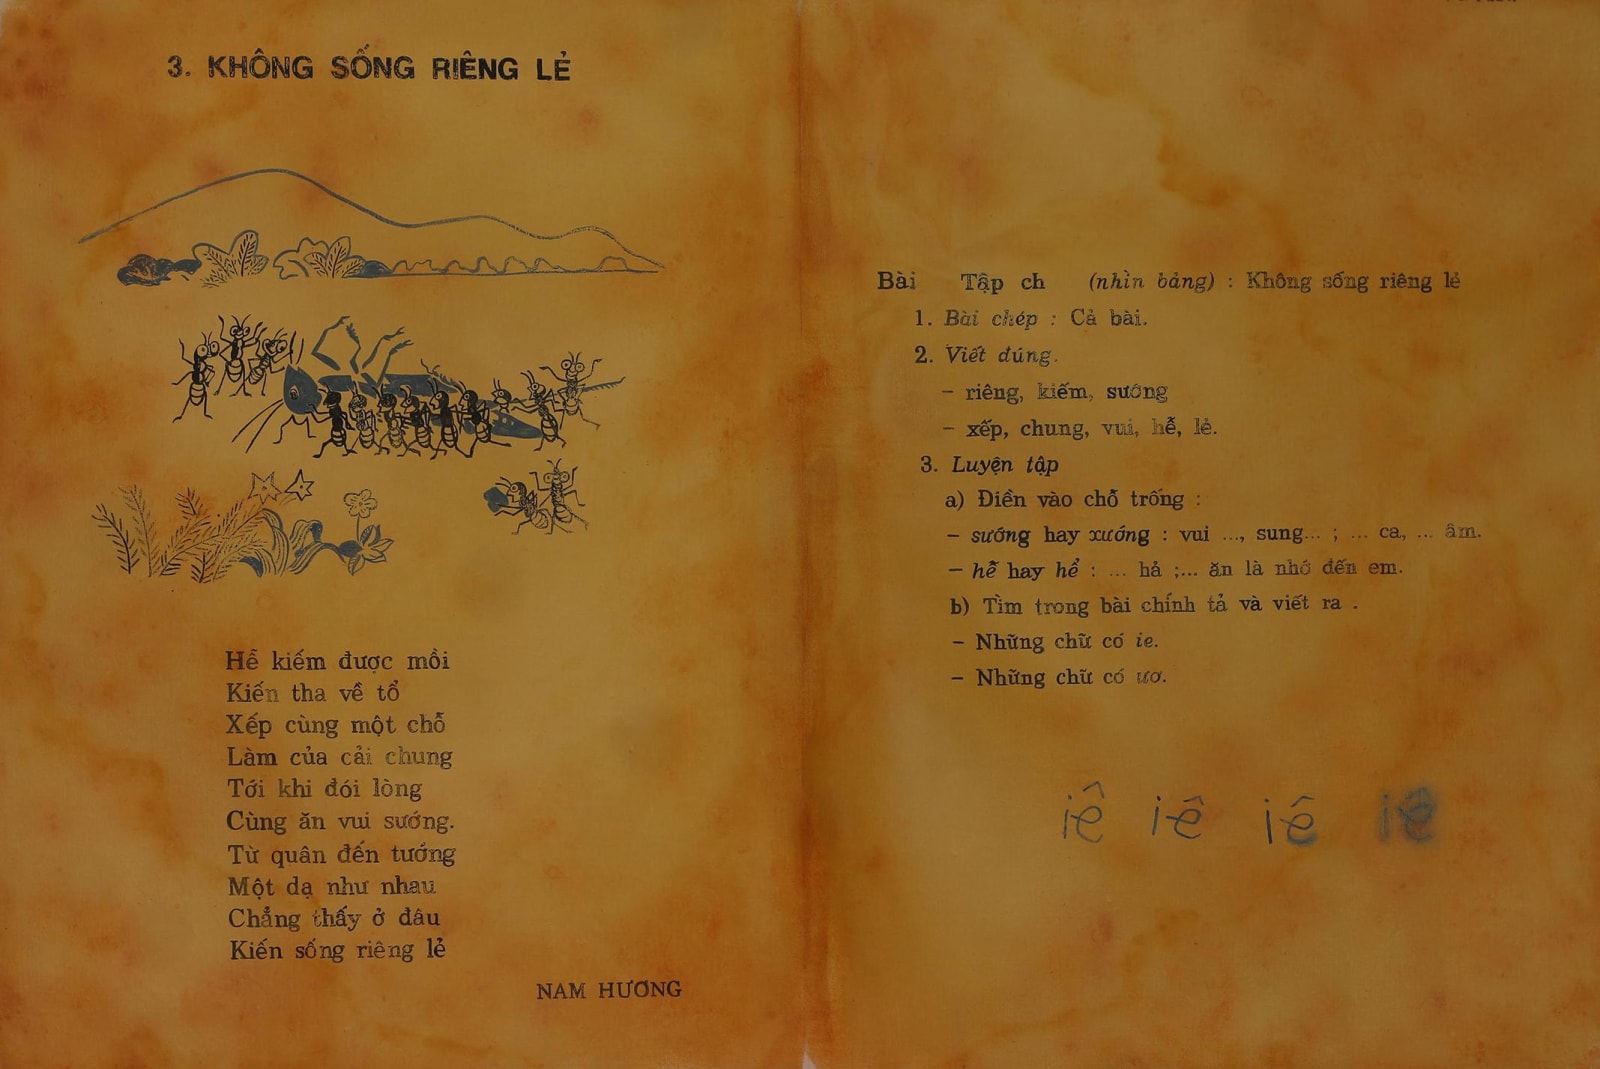 3. KHÔNG SỐNG RIÊNG LẺ
Hễ kiếm được mồi
Kiến tha về tổ
Xếp cùng một chỗ
Làm của cải chung
Tới khi đói lòng
Cùng ăn vui sướng.
Từ quân đến tướng
Một dạ như nhau
Chẳng thấy ở đâu
Kiến sống riêng lẻ
NAM HƯƠNG
Bài Tập ch (nhìn bảng) : Không sống riêng lẻ
1. Bài chép : Cả bài.
2. Viết đúng.
– riêng, kiếm, sướng
– xếp, chung, vui, hễ, lẻ.
3. Luyện tập
a) Điền vào chỗ trống :
– sướng hay xướng : vui ..., sung... ; ... ca, ... âm.
– hễ hay hể : ... hả ;... ăn là nhớ đến em.
b) Tìm trong bài chính tả và viết ra .
– Những chữ có ie.
– Những chữ có ươ.
iê iê iê iê